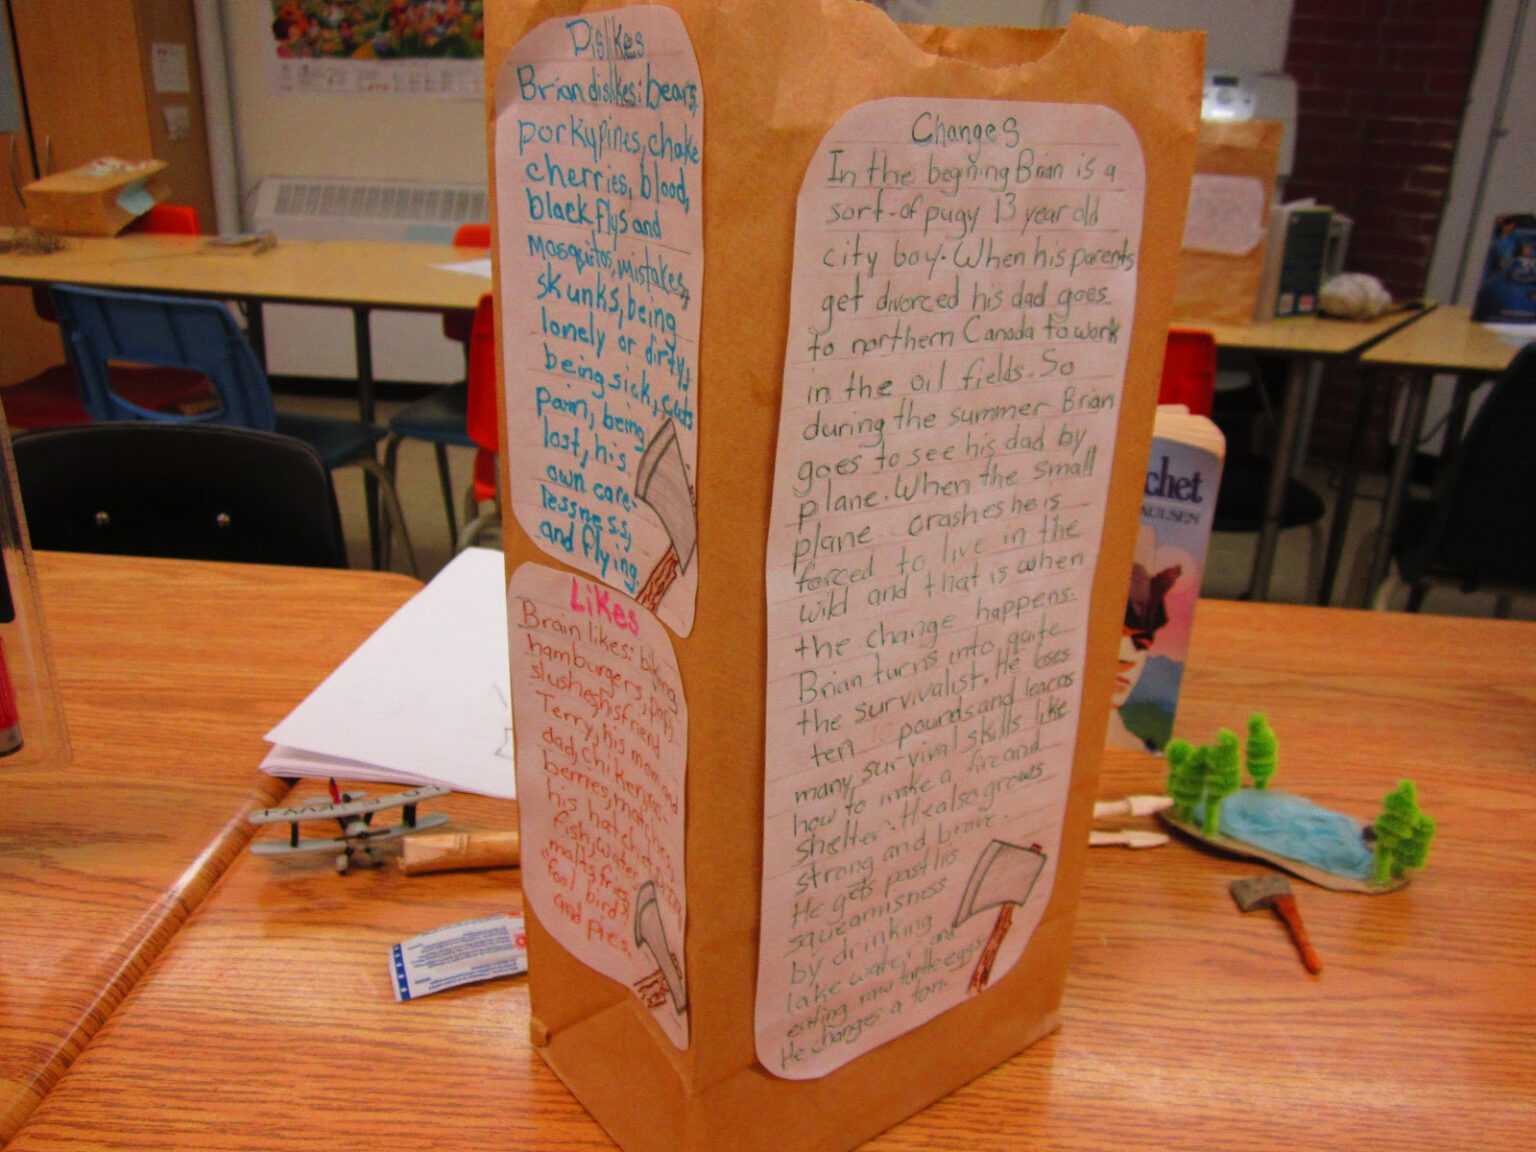 Dislikes
Brian dislikes: bears,
porkypines, choke
cherries, blood,
black flys and
mosquitos, mistakes,
skunks, being
lonely or dirty,
being sick, cuts
pain, being
lost, his
own care-
lessness,
and flying.
Likes
Brain likes: biking
hamburgers, pop,
slushes, his friend
Terry, his mom and
dad, Chikenjuo-
berries, matches,
his hatchet,
fish, water
malts, fries
fool birds
and pies.
Changes
In the begining Brian is a
sort-of pugy 13 year old
city boy. When his parents
get divorced his dad goes
to northern Canada to work
in the oil fields. So
during the summer Brian
goes to see his dad by
plane. When the small
plane crashes he is
forced to live in the
wild and that is when
the change happens.
Brian turns into quite
the survivalist. He loses
ten pounds and learns
many survival skills like
how to make a fire and
shelter. He also grows
strong and brave.
He gets past his
squeamisness
by drinking
lake water, and
eating raw turtle eggs.
He changes a ton.
chet
AULSEN